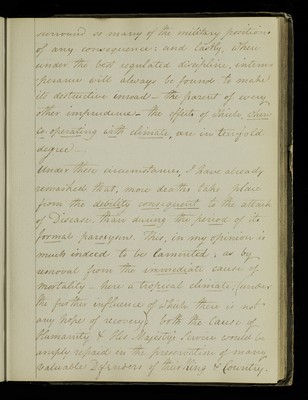 surround so many of the military positions
of any consequence: and lastly, when
under the best regulated discipline, intem-
perance will always be found to make
its destructive inroad - the parent of every
other imprudence - the effects of which, when
co-operating with climate, are in tenfold
degree -
Under these circumstances, I have already
remarked that, more deaths take place
from the debility consequent to the attack
of Disease, than during the period of its
formal paroxysm. This, in my opinion is
much indeed to be lamented; as by
removal from the immediate cause of
mortality - here a tropical climate - (under
the further influence of which there is not
any hope of recovery) both the Cause of
Humanity & His Majesty's Service would be
amply repaid in the preservation of many
valuable Defenders of their King & Country.